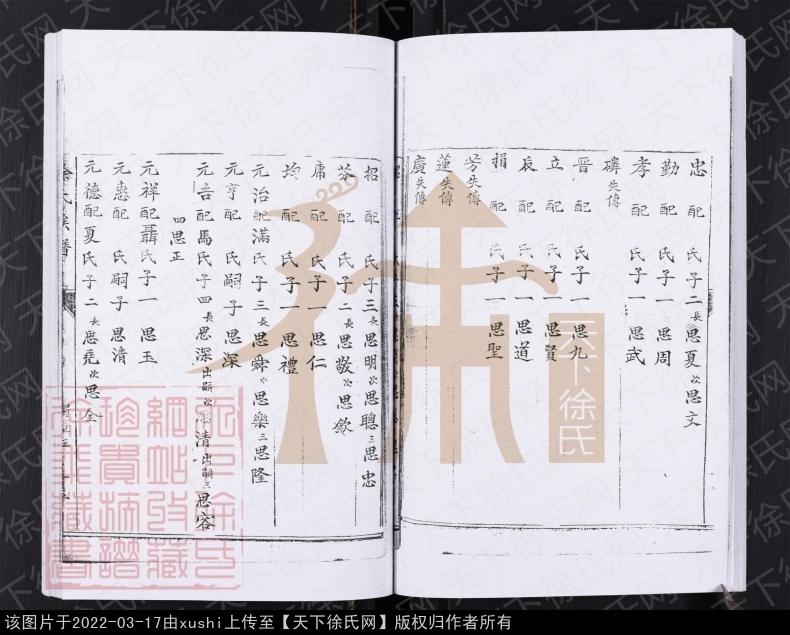 忠配 氏子二長思夏次思文
勤配 氏子一思周
孝配 氏子一思武
磷失傳
晋配 氏子一思九
立配 氏子一思賢
辰配 氏子一思道
捐配 氏子一思聖
芳失傳
蓮失傳
廣失傳
招配 氏子三長思明次思聰三思忠
芬配 氏子二長思敬次思欽
庸配 氏子一思仁
均配 氏子一思禮
元治配滿氏子三長思舜次思樂三思隆
元亨配 氏嗣子思深
元吉配馬氏子四長思深出嗣次思清出嗣三思容
四思正
元祥配聶氏子一思玉
元惠配 氏嗣子思清
元德配夏氏子二長思堯次思全
徐氏族譜
天下徐氏
天下徐氏网
该图片于2022-03-17由xushi上传至【天下徐氏网】版权归作者所有